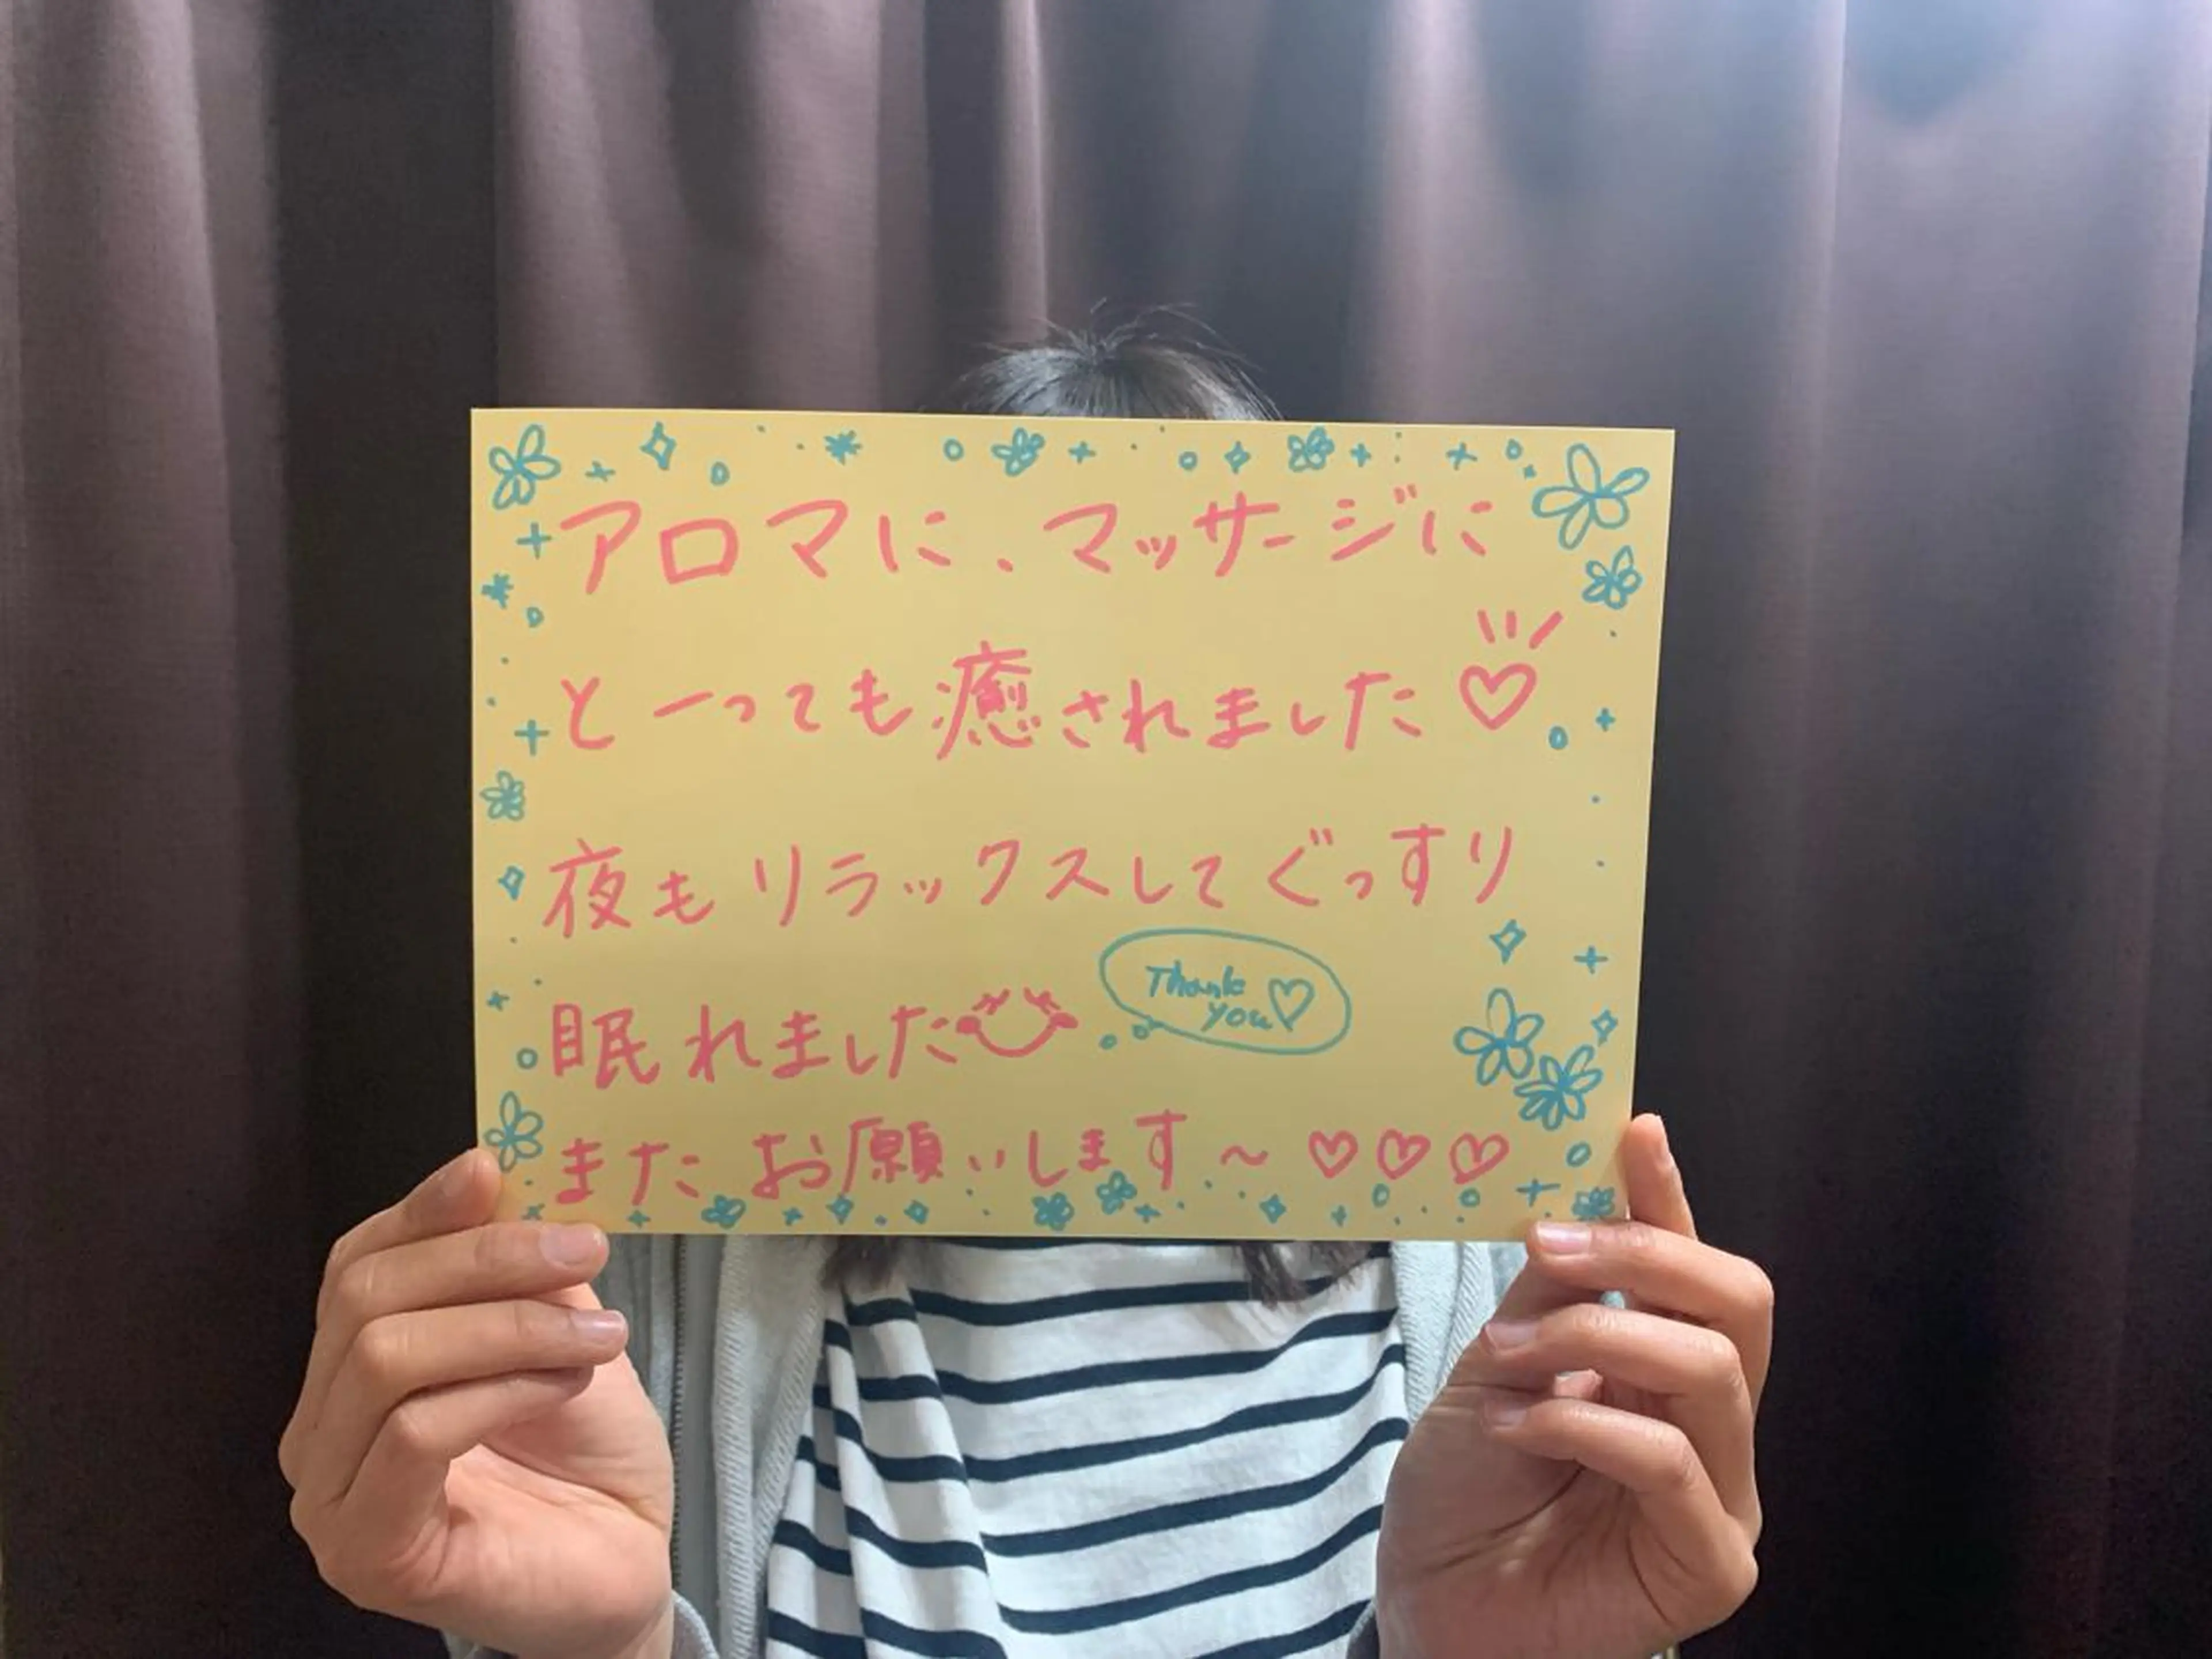 アロマに、マッサージに
とーっても癒されました♡
夜もリラックスしてぐっすり
眠れました
Thank
you♡
またお願いします〜♡♡♡